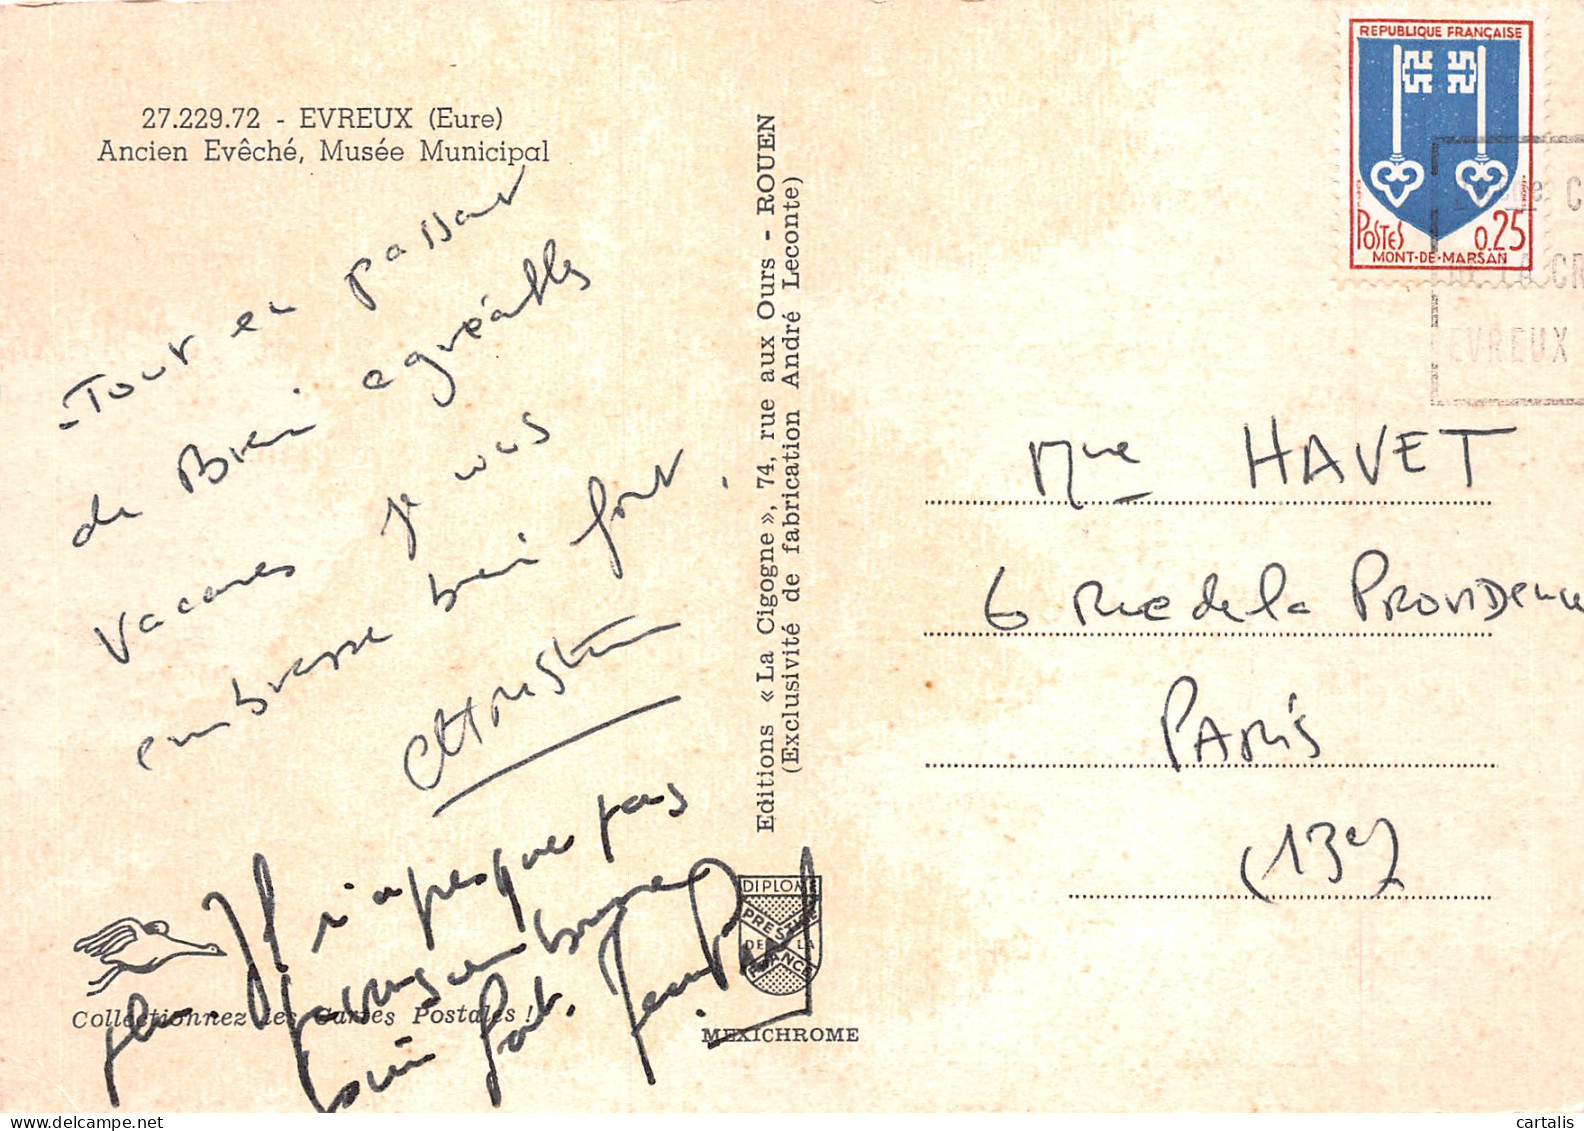 27.229.72 - EVREUX (Eure)
Ancien Evêché, Musée Municipal
-Tout en passant
de Bien agréables
Vacances je vous
embrasse bien fort,
Christin
presque pas
bien fort.
Collectionnez les Cartes Postales !
Editions « La Cigogne », 74, rue aux Ours - ROUEN
(Exclusivité de fabrication André Leconte)
DIPLOME
PRESTIGE
DE LA
FRANCE
MEXICHROME
REPUBLIQUE FRANÇAISE
POSTES 0.25
MONT-DE-MARSAN
DE LA CR
EVREUX
Mme HAVET
6 Rue de la PROVIDence
PARis
(13e)
cartalis